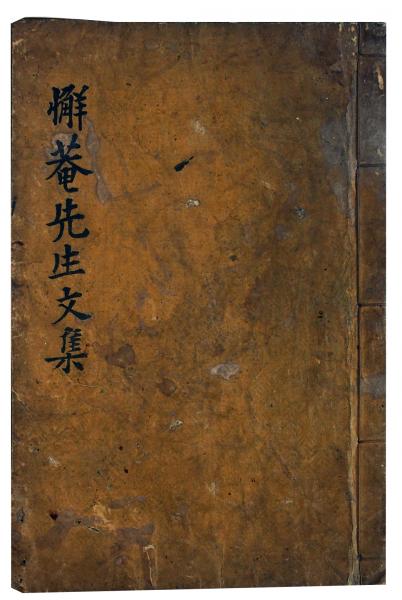 懈菴先生文集